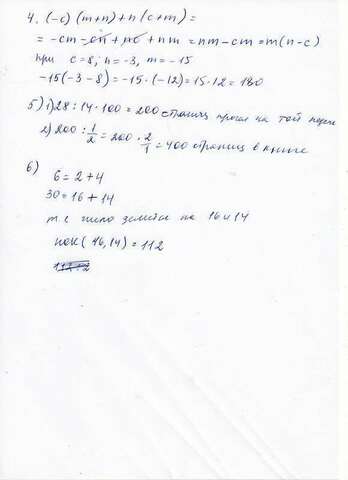 4. (-c)(m+n)+n(c+m)=
= -cm - cn + nc + nm = nm - cm = m(n-c)
при c=8, n=-3, m=-15
-15(-3-8)=-15·(-12)=15·12=180
5) 1) 28:14·100=200 страниц на той неделе
2) 200:1/2=200·2/1=400 страниц в книге
6)
6=2+4
30=16+14
т.е. число делится на 16 и 14
НОК(16,14)=112